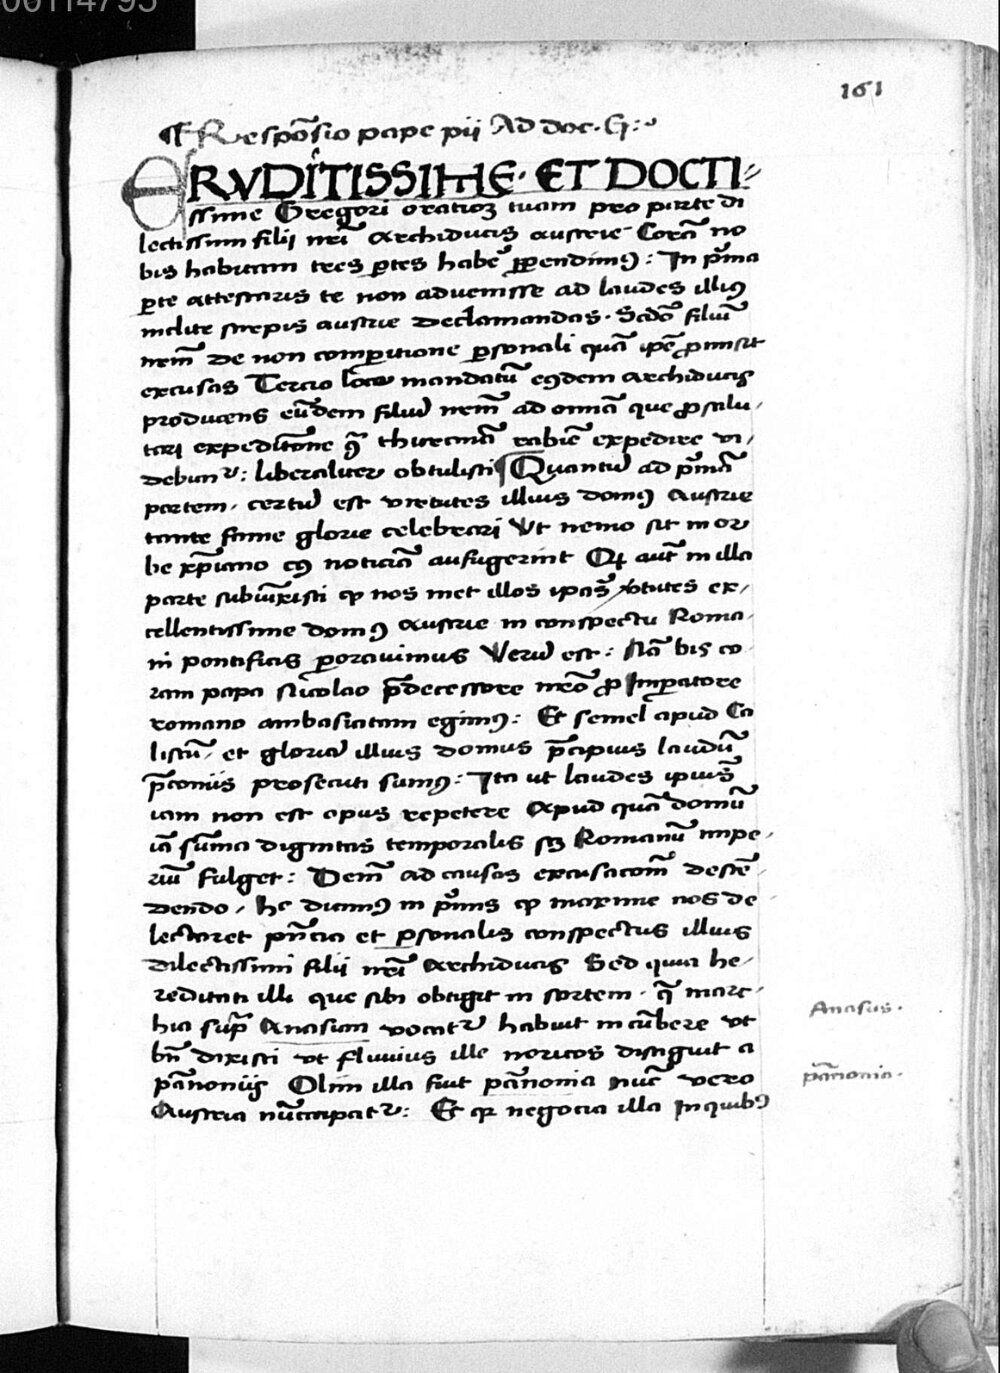 00114795
161
¶ Respo̅sio pape pij Ad doc. G:
ERVDITISSIME· ET DOCTI-
ssime Gregori orationꝫ tuam pro parte di
lectissimi filij nr̅i Archiducis austrie Cora̅ no
bis habitam tres ꝑtes habe̅ ꝑpendimꝰ: In pi̅ma
ꝑte attestaris te non aduenisse ad laudes illiꝰ
inclite stirpis austrie declamandas· Scd̅o filiu̅
nr̅m de non comparitione ꝑsonali qua̅ ipe̅ ꝓmisit
excusas Tercio loco mandatu̅ eꝰdem archiducis
producens eu̅dem filiu̅ nr̅m ad omnia que ꝓ salu-
tari expedito̅ne thurcima̅ rabie̅ expedire vi-
debunt͛: liberaliter obtulisti ¶ Quantu̅ ad pi̅ma̅
partem, certu̅ est virtutes illius domꝰ Austrie
tante fame glorie celebrari Vt nemo sit in or
be xp̅iano cꝰ noticia̅ aufugerint Qꝫ aut̅ in illa
parte subiu̅xisti ꝙ nos met illos ipas̅ v̓tutes ex-
cellentissime domꝰ Austrie in conspectu Roma-
ni pontificis ꝑorauimus Veru̅ est: Na̅ bis co-
ram papa Nicolao p̅decessore nr̅o ꝓ Imꝑatore
romano ambasiatam egimꝰ: Et semel apud Ca
listu̅, et gloria̅ illius domus p̅cipuis laudu̅
p̅conijs prosecuti sumꝰ: Ita ut laudes ipius̅
iam non est opus repetere Apud qua̅ domu̅
ia̅ su̅ma dignitas temporalis sꝫ Romanu̅ impe-
riu̅ fulget: Dem̅ ad causas excusaco̅m desce̅-
dendo, he dicimꝰ in pi̅mis ꝙ maxime nos de-
lectaret pn̅cia et ꝑsonalis conspectus illius
dilectissimi filij nr̅i Archiducis Sed quia he-
reditati illi que sibi obtigit in sortem· q̅ mar-
hia sup̅ Anasum vocat͛ habuit incu̅bere vt
bn̅ dixisti vt fluuius ille noricos distiguit a
pa̅nonijs Olim illa fuit pa̅nonia nu̅c vero
Austria nu̅ccupat͛: Et qꝛ negocia illa In quibꝰ
Anasus.
pa̅nonia.